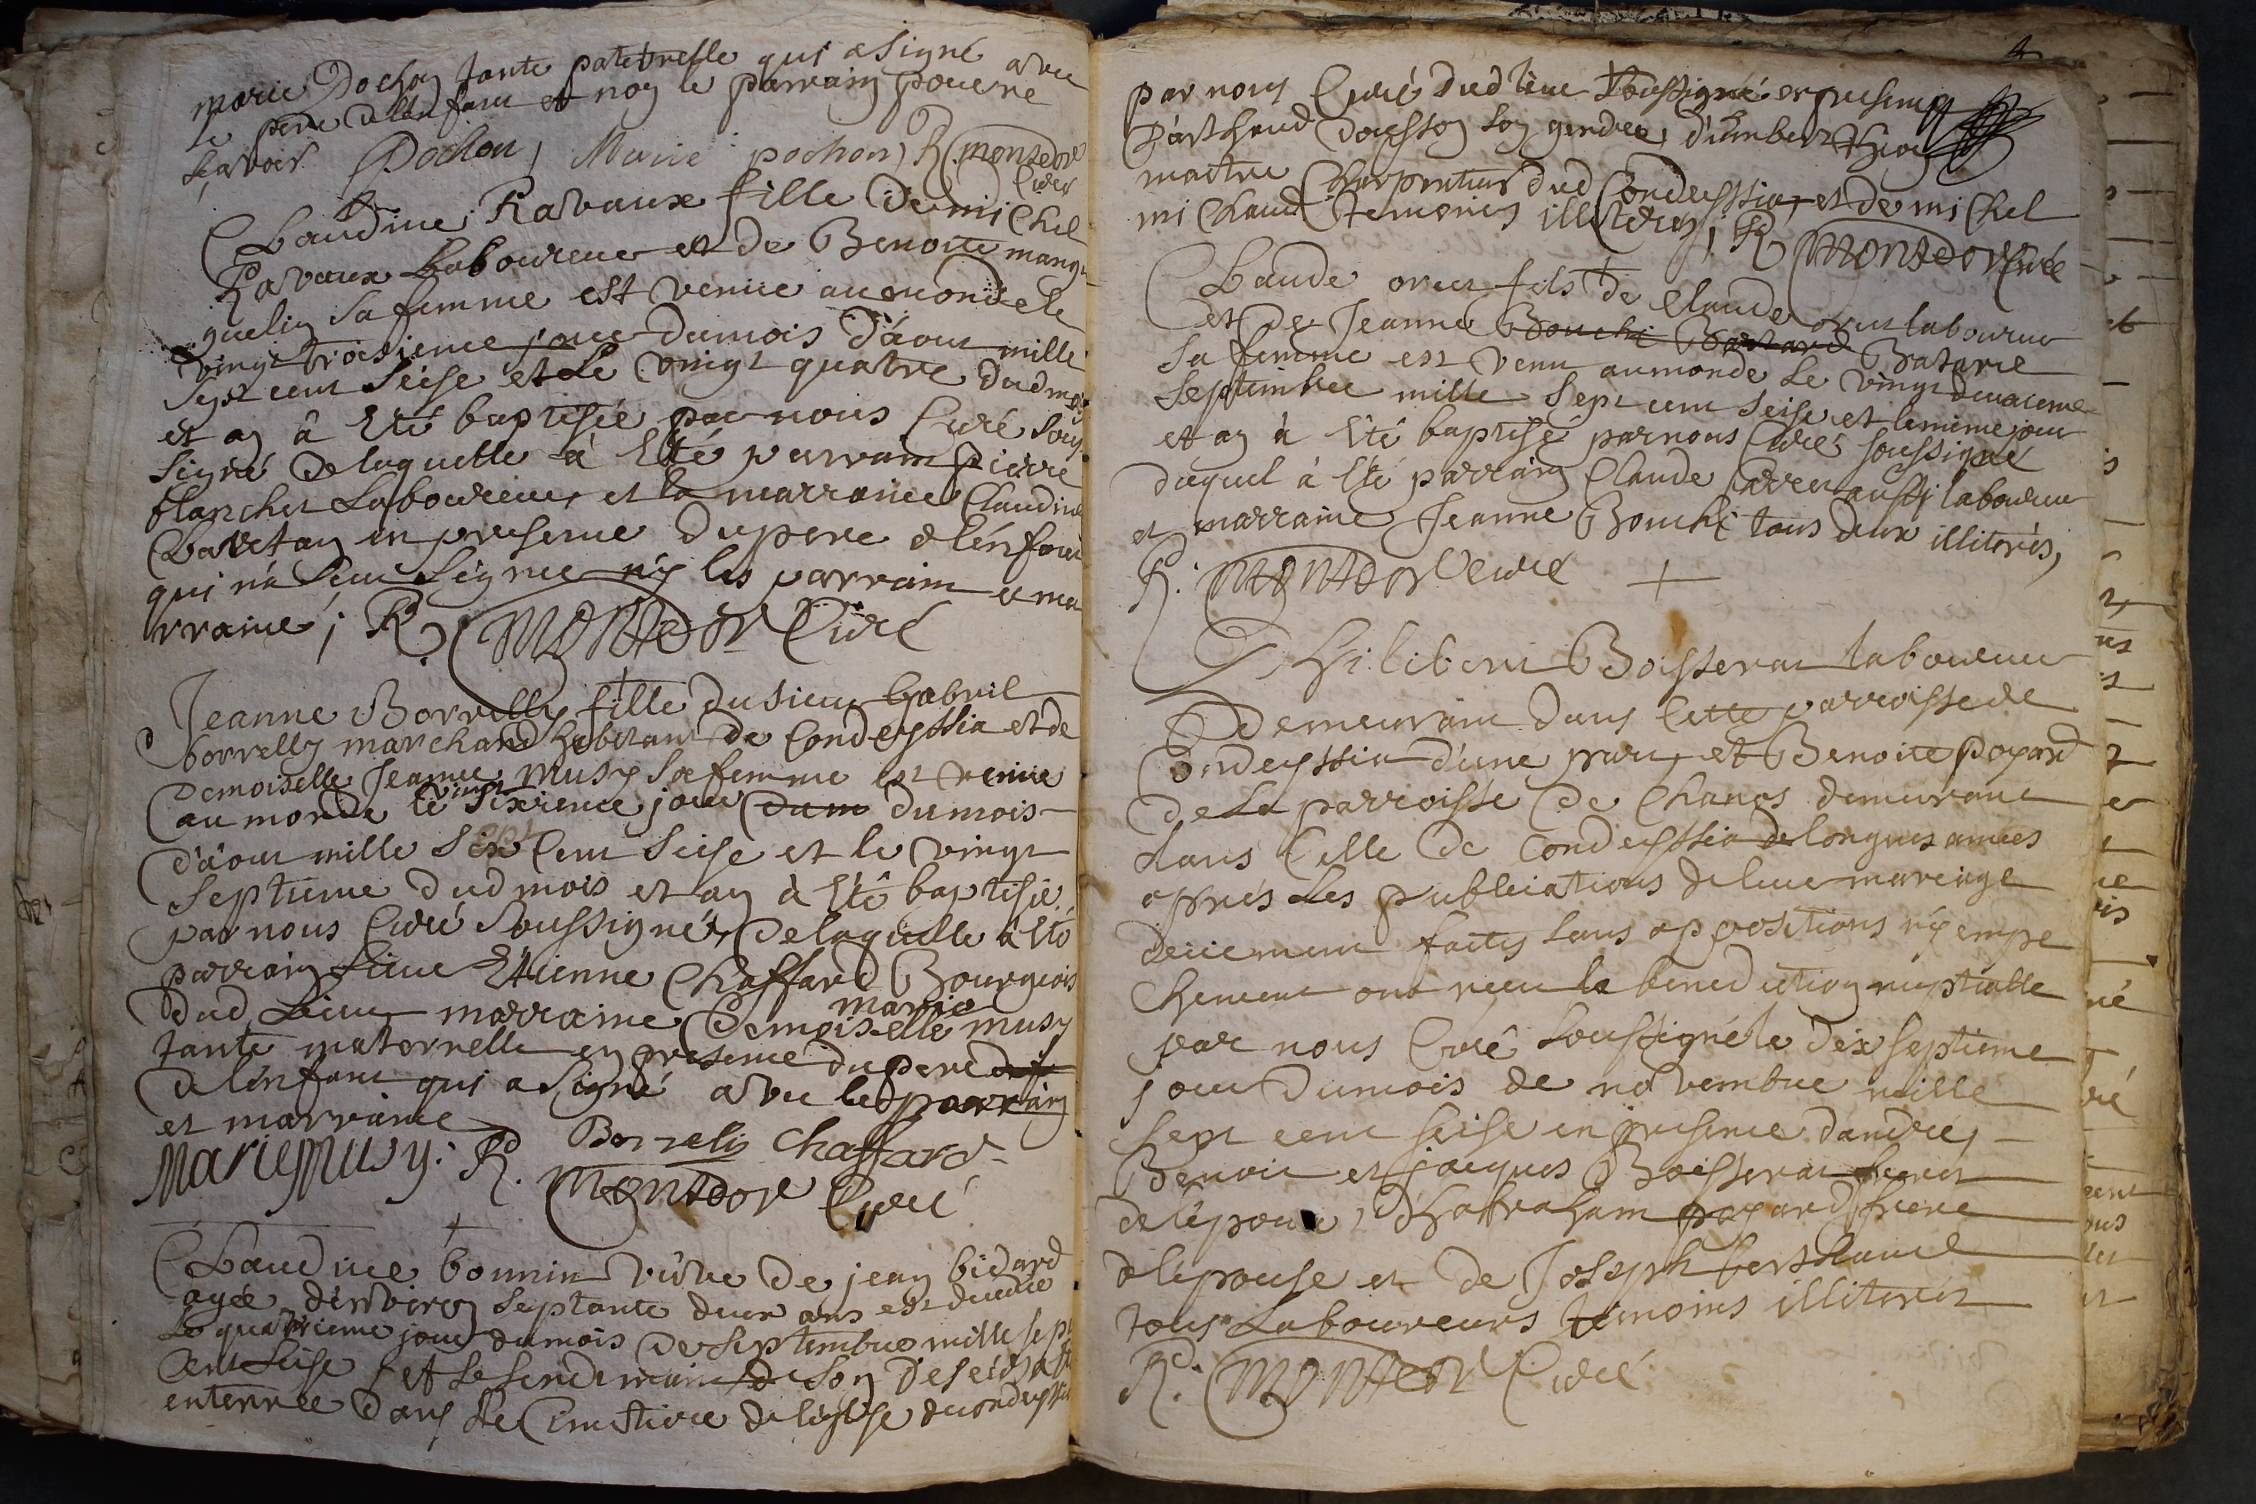 marie Pochon tante paternelle qui a signé avec
le pere de lenfant et non le parrain pour ne
scavoir. Pochon, Marie pochon, R. Montedor
Curé
Claudine Ravaux fille de michel
Ravaux Laboureur et de Benoite mangu
quelin sa femme est venue au monde le
vingt troisieme jour du mois d'aout mille
sept cent seise et le vingt quatre dud mois
et an à eté baptisée par nous Curé sous
signé de laquelle à eté parrain pierre
blanchet Laboureur et la marraine Claudine
en presence du pere de lénfant
qui n'a sceu signer ny les parrain et ma
rraine, R. Montedor Curé
Jeanne Borrelly fille du sieur Gabriel
borrelly marchand habitant de Condeyssia et de
Demoiselle Jeanne Musy sa femme est venue
au monde le vingt sixieme jour dum du mois
d'aout mille sept cent seise et le vingt
septieme dud mois et an à eté baptisée
par nous Curé soussigné, de laquelle à eté
parrain sieur Etienne Chaffard Bourgeois
dud Lieu marraine Demoiselle marie musy
tante maternelle en presence du pere
de lénfant qui a signé avec les parrain
et marraine
Marie Musy. Borrelly Chaffard
R. Montedor Curé
Claudine bonnin veuve de jean bidard
agée d'environ septante deux ans est decedée
le quatrieme jour du mois de septembre mille sept
cent seise et le lendemain de son deséds a eté
enterrée dans le Cimetiere de léglise de condeyssia
par nous Curé dud lieu soussigné en presence
son gendre, d'umbert
maitre Charpentier dud Condeyssia, et de michel
michaud temoins illiterés, R. Montedor Curé
Claude orset fils de Claude orset laboureur
et de Jeanne Bouchi Bastard Batarde
sa femme est venu au monde le vingt deuxieme
septembre mille sept cent seise et le même jour
et an à eté baptisé par nous Curé soussigné
duquel à eté parrain Claude aussi laboureur
et marraine Jeanne Bouchi tous deux illiterés,
R. Montedor Curé
Philibert Boisserat laboureur
Demeurant dans cette parroisse de
Condeyssia d'une part, et Benoite poyard
de la parroisse de Chanos demeurant
dans celle de Condeyssia de longues années
aprés les publications de leur mariage
deuement faites sans oppositions ny empe
chement ont receu la benediction nuptialle
par nous Curé soussigné le dix septieme
jour du mois de novembre mille
sept cent seise en presence d'andré,
Benoit et jacques Boisserat freres
de lépoux, d'habraham poyard frere
de lépouse et de Joseph berthaud
tous Laboureurs témoins illiterés
R. Montedor Curé